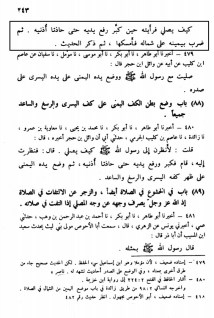 ٢٤٣
كيف يصلي فرأيته حين كبر رفع يديه حتى حاذتا أذنيه . ثم
ضرب بيمينه على شماله فأمسكها ، ثم ذكر الحديث .
٤٧٩ — أخبرنا أبو طاهر، نا أبو بكر، نا أبو موسى، نا مؤمل، نا سفيان عن عاصم
ابن كليب عن أبيه عن وائل بن حجر قال :
صليت مع رسول الله ﷺ ووضع يده اليمنى على يده اليسرى على
صدره .
(٨٨) باب وضع بطن الكف اليمنى على كف اليسرى والرسغ والساعد
جميعاً .
٤٨٠ — أخبرنا أبو طاهر، نا أبو بكر، نا محمد بن يحيى، نا معاوية بن عمرو،
نا زائدة، نا عاصم بن كليب الجرمي، حدثني أبي أن وائل بن حجر أخبره قال :
قلت : لأنظرن إلى رسول الله ﷺ كيف يصلي . قال : فنظرت
إليه، قام فكبر ورفع يديه حتى حاذتا أذنيه، ثم وضع يده اليمنى
على ظهر كفه اليسرى والرسغ والساعد .
(٨٩) باب في الخشوع في الصلاة أيضاً، والزجر عن الالتفات في الصلاة
إذ الله عز وجل يصرف وجهه عن وجه المصلي إذا التفت في صلاته .
٤٨١ — أخبرنا أبو طاهر، نا أبو بكر، نا أحمد بن عبد الرحمن بن وهب، حدثني
عمي، أخبرني يونس عن الزهري، قال : سمعت أبا الأحوص مولى بني ليث يحدثنا في مجلس
ابن المسيب أن أبا ذر قال :
قال رسول الله ﷺ بمثله .
٤٧٩ — إسناده ضعيف، لأن مؤملا وهو ابن إسماعيل سيء الحفظ، لكن الحديث صحيح جاء من
طرق أخرى بمعناه، وفي الوضع على الصدر أحاديث تشهد له . ناصر .